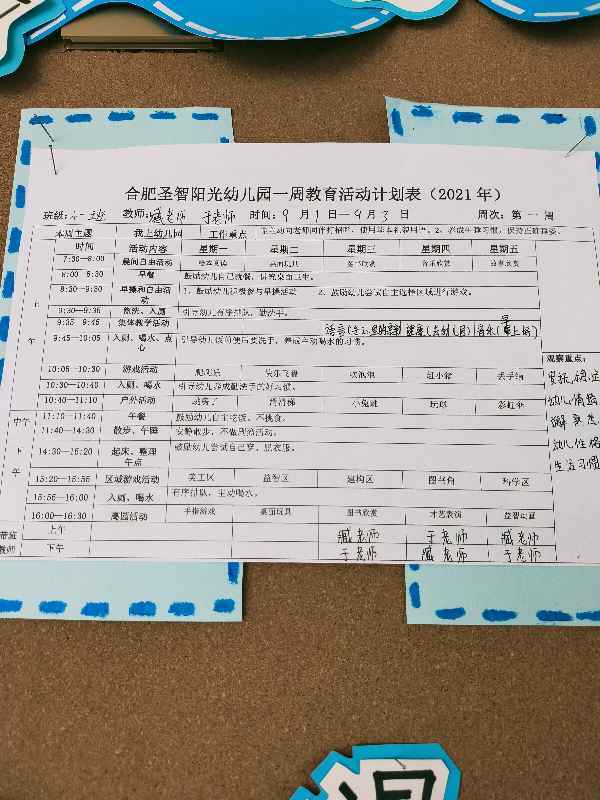 合肥圣智阳光幼儿园一周教育活动计划表（2021年）
班级：小一班 教师：臧老师 于老师 时间：9月1日—9月3日 周次：第一周
本周主题 我上幼儿园 工作重点
时间 活动内容 星期一 星期二 星期三 星期四 星期五
7:30—8:00 晨间自由活动 绘本阅读 桌面玩具
8:00—8:30 早餐 鼓励幼儿自己就餐，讲究桌面卫生。
8:30—9:30 早操和自由活动 1、鼓励幼儿积极参与早操活动 2、鼓励幼儿尝试自主选择区域进行游戏。
9:30—9:35 盥洗、入厕 引导幼儿有序排队，勤洗手。
9:35—9:45 集体教学活动
9:45—10:05 入厕、喝水、点心 引导幼儿饭前便后要洗手，养成主动喝水的习惯。
观察重点：
10:05—10:30 游戏活动 吹泡泡 红小猪 丢手绢
10:30—10:40 入厕、喝水 引导幼儿养成勤洗手的好习惯。
10:40—11:10 户外活动 滑滑梯 小兔跳 玩球 彩虹伞
中午 11:10—11:40 午餐 鼓励幼儿自主吃饭，不挑食。
11:40—14:30 散步、午睡 安静散步，不做剧烈活动。
下午 14:30—15:20 起床、整理 午点 鼓励幼儿尝试自己穿、脱衣服。
15:20—15:55 区域游戏活动 美工区 益智区 建构区 图书角 科学区
15:55—16:00 入厕、喝水 有序排队，主动喝水。
16:00—16:30 离园活动 手指游戏 桌面玩具 图书欣赏 才艺表演 益智动画
带班教师 上午 臧老师 于老师 臧老师
下午 于老师 臧老师 于老师